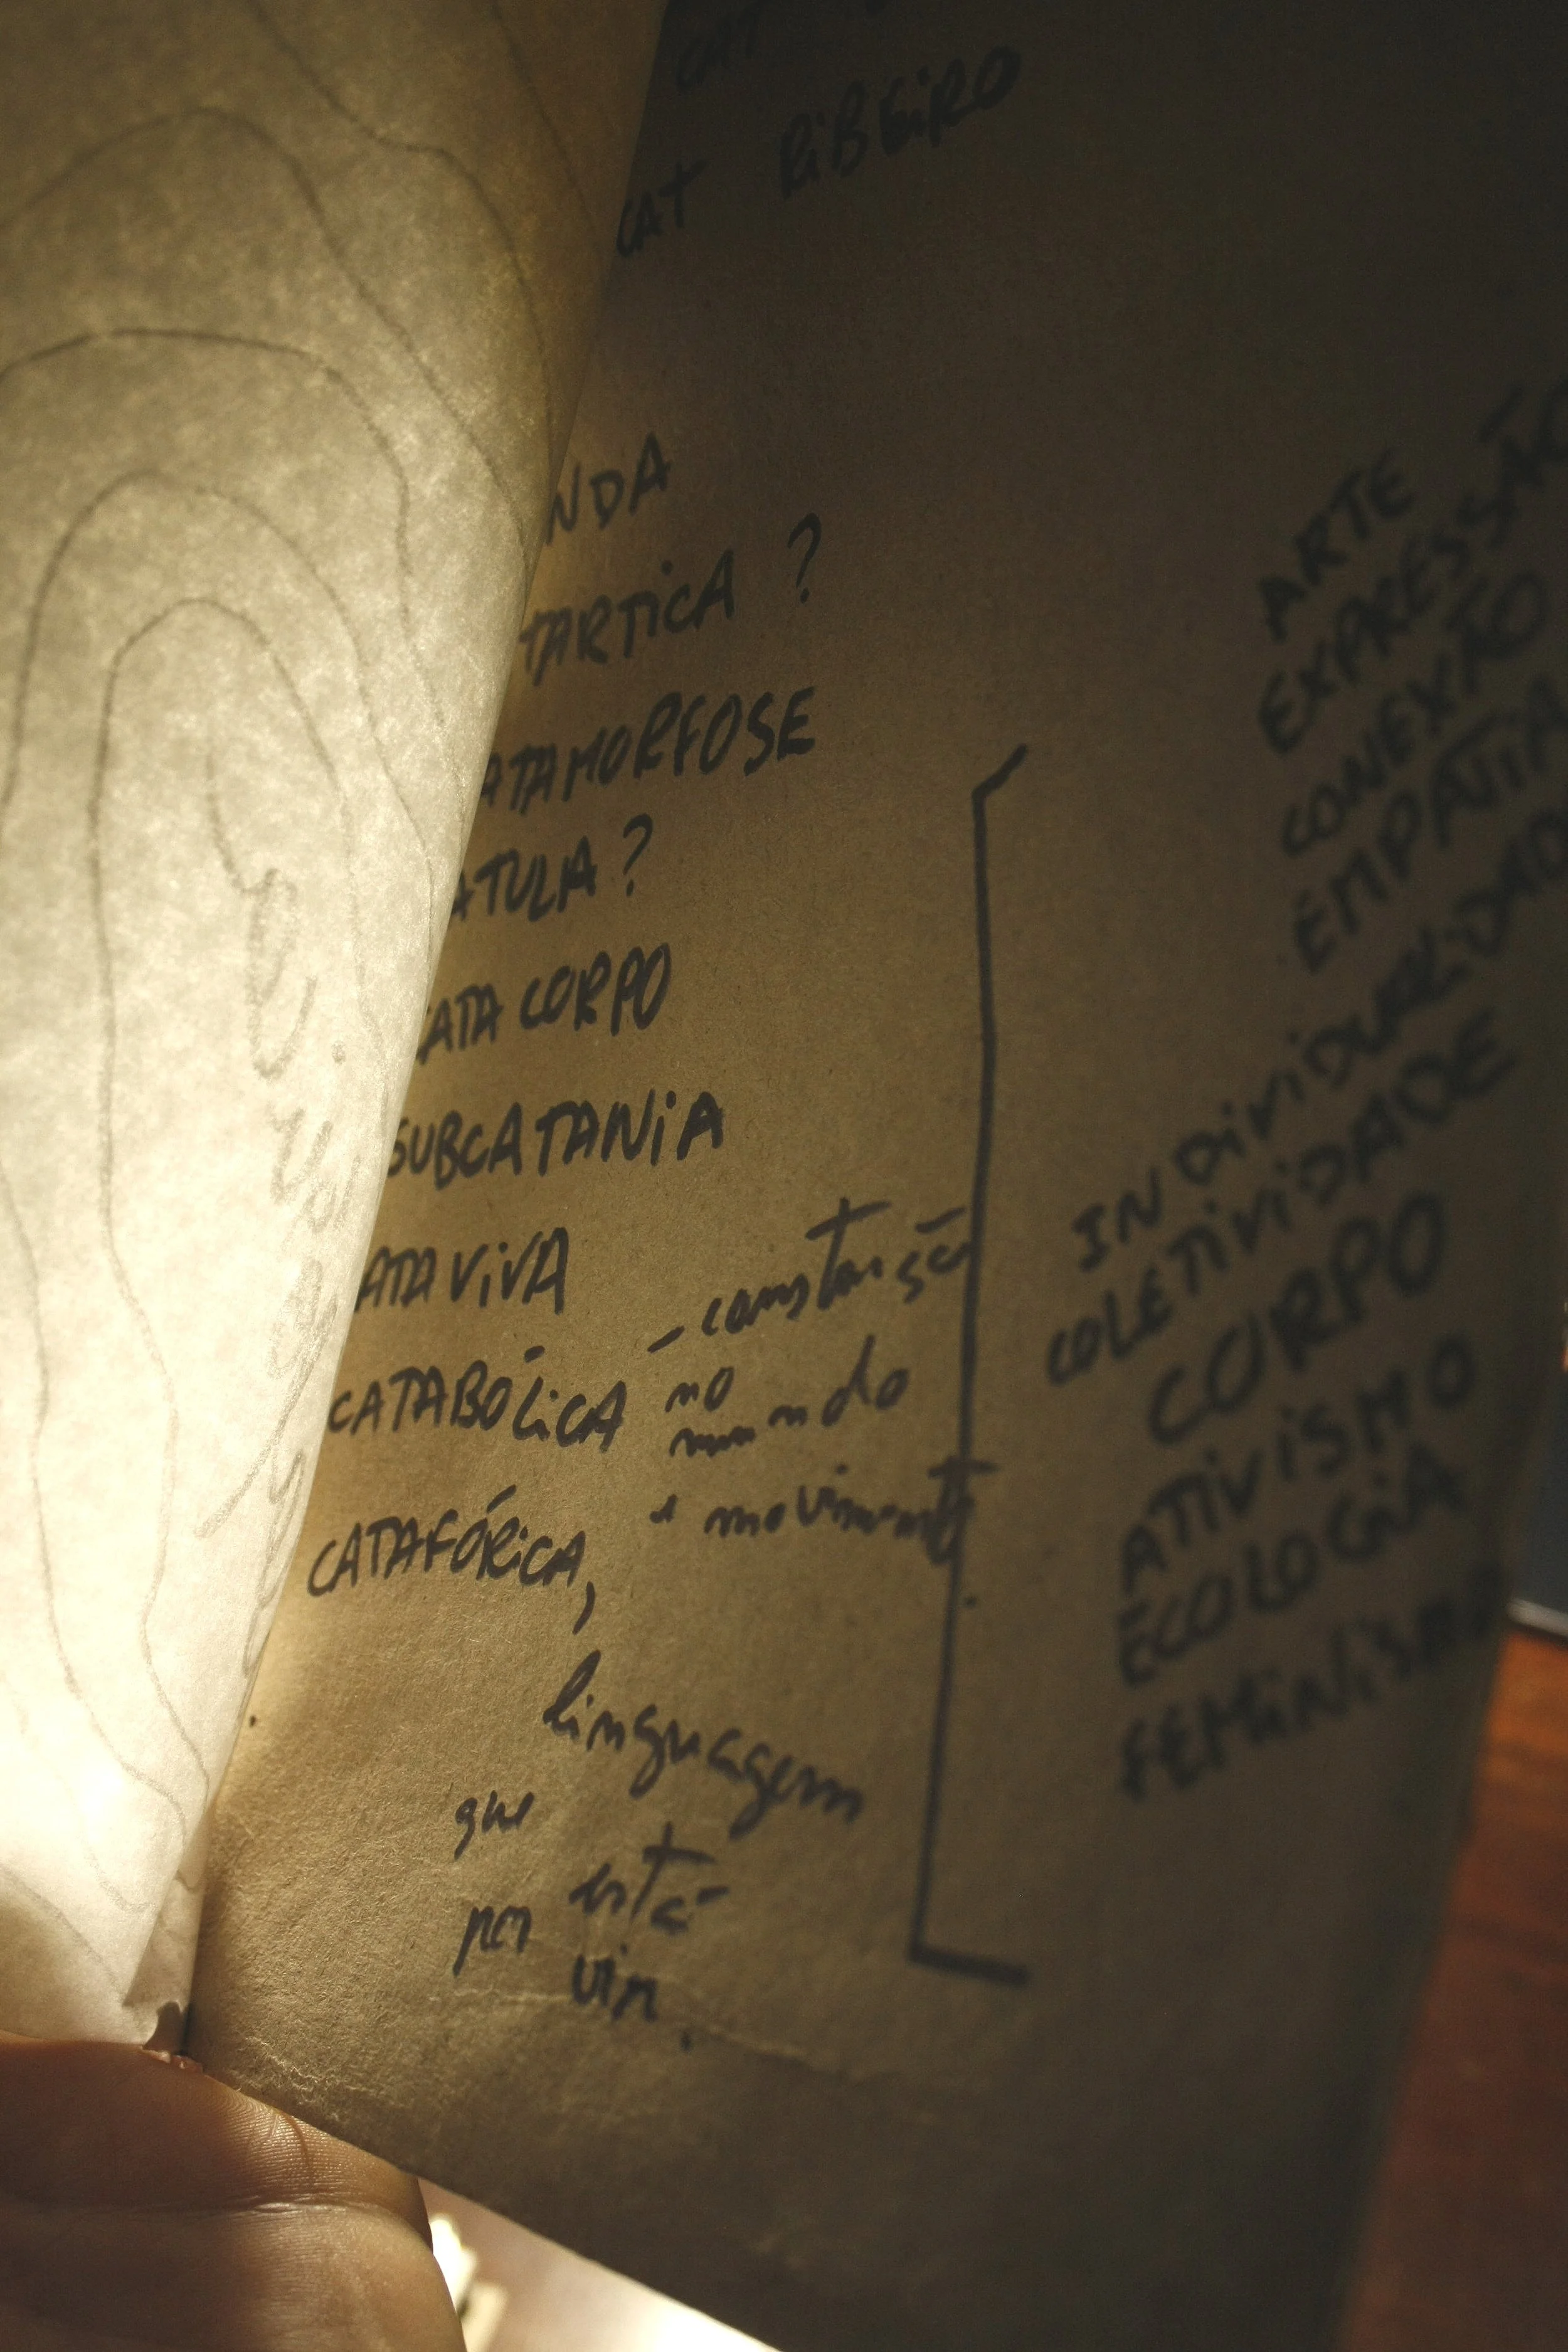 CAT
CAT RIBEIRO
NDA
TARTICA ?
ATAMORFOSE
ATULA ?
CATA CORPO
SUBCATANIA
ATA VIVA
CATABÓLICA – construção
no
mundo
e movimento
CATAFÓRICA,
linguagem
que está
por vir.
ARTE
EXPRESSÃO
CONEXÃO
EMPATIA
INDIVIDUALIDAD
COLETIVIDADE
CORPO
ATIVISMO
ECOLOGIA
FEMINISM